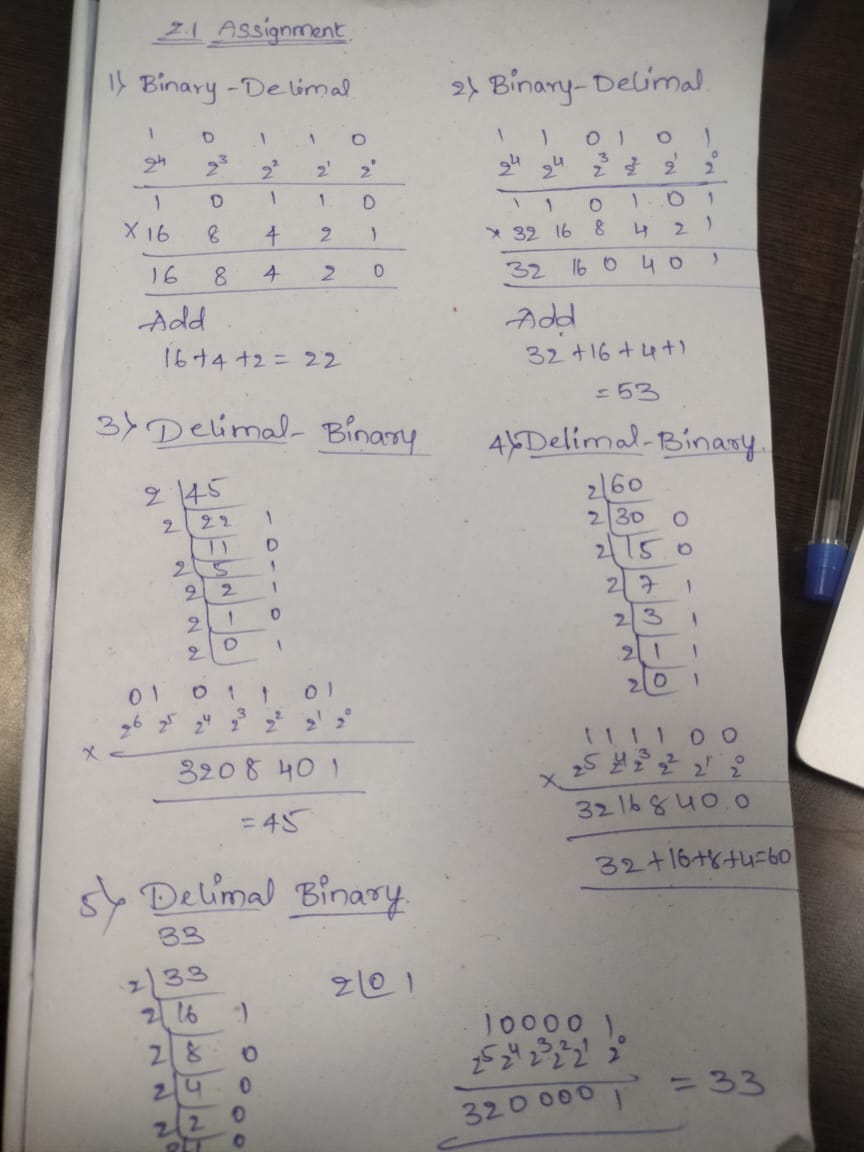 2.1 Assignment
1) Binary - Delimal
1 0 1 1 0
2⁴ 2³ 2² 2¹ 2⁰
1 0 1 1 0
X 16 8 4 2 1
16 8 4 2 0
Add
16+4+2 = 22
2) Binary - Delimal
1 1 0 1 0 1
2⁴ 2⁴ 2³ 2² 2¹ 2⁰
1 1 0 1 0 1
x 32 16 8 4 2 1
32 16 0 4 0 1
Add
32+16+4+1
= 53
3) Delimal - Binary
2 45
2 22 1
11 0
2 5 1
2 2 1
2 1 0
2 0 1
01 0 1 1 01
2⁶ 2⁵ 2⁴ 2³ 2² 2¹ 2⁰
x
3208 401
= 45
4) Delimal - Binary.
2 60
2 30 0
2 15 0
2 7 1
2 3 1
2 1 1
2 0 1
1 1 1 1 0 0
x 2⁵ 2⁴ 2³ 2² 2¹ 2⁰
3216840.0
32+16+8+4=60
5) Delimal Binary.
33
2 33
2 16 1
2 8 0
2 4 0
2 2 0
2 1 0
2 0 1
10000 1
2⁵ 2⁴ 2³ 2² 2¹ 2⁰
320000 1 = 33